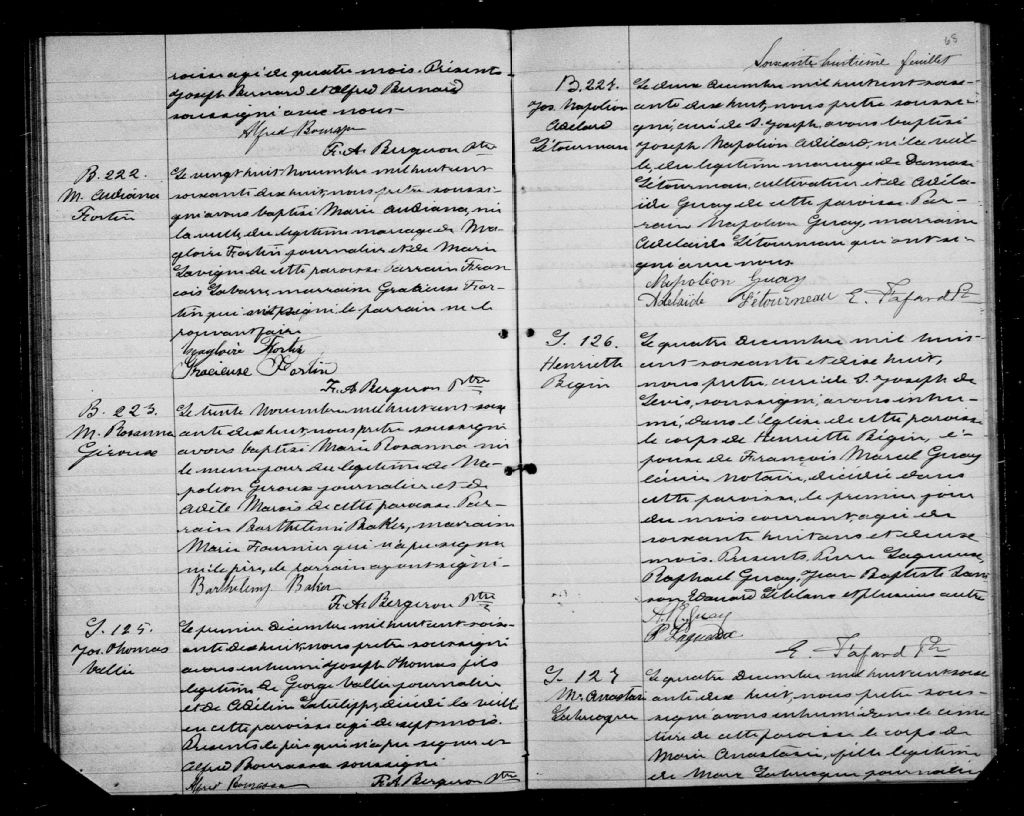 roisse agé de quatre mois. Présents
Joseph Bernard et Alfred Bernard
soussigné avec nous
Alfred Bourassa
F. A. Bergeron Ptre
B. 222.
M. Audiana
Fortin
Le vingt huit Novembre mil huit cent
soixante dix huit, nous pretre soussi-
gné avons baptisé Marie Audiana, née
la veille du légitime mariage de Ma-
gloire Fortin journalier et de Marie
Lavigne de cette paroisse Parrain Fran
cois Labarre, marraine Gratieuse For-
tin qui signé le parrain ne le
pouvant faire
Magloire Fortin
Gracieuse Fortin
F. A. Bergeron Ptre
B. 223.
M. Rosanna
Giroux
Le trente Novembre mil huit cent soix
ante dix huit, nous pretre soussigné
avons baptisé Marie Rosanna née
le meme jour du légitime de Na-
poléon Giroux journalier et de
Adèle Marois de cette paroisse Par-
rain Barthélémi Baker, marraine
Marie Fournier qui n'a pu signer
ni le père, le parrain ayant signé-
Barthélémy Baker
F. A. Bergeron Ptre
S. 125.
Jos. Thomas
Vallée
Le premier décembre mil huit cent soix-
ante dix huit, nous pretre soussigné
avons inhumé Joseph Thomas fils
légitime de George Vallée journalier
et de Adéline Latulippe, décédé la veille
en cette paroisse agé de sept mois.
Présents le père qui n'a pu signer et
Alfred Bourassa soussigné
Alfred Bourassa F. A. Bergeron Ptre
68
Soixante huitième feuillet
B. 224.
Jos. Napoléon
Adélard
Létourneau
Le deux décembre mil huit cent soix-
ante dix huit, nous pretre sousse-
gné, curé de S. Joseph, avons baptisé
Joseph Napoléon Adélard, né la veil-
le, du légitime mariage de Damase
Létourneau, cultivateur et de Adéla-
ide Guay de cette paroisse. Par-
rain Napoléon Guay, marraine
Adélaide Létourneau qui ont si-
gné avec nous
Napoléon Guay
Adélaide Létourneau E. Fafard Pr
S. 126.
Henriette
Bégin
Le quatre décembre mil huit
cent soixante et dix huit,
nous pretre, curé de S. Joseph de
Lévis, soussigné, avons inhu-
mé, dans l'église de cette paroisse
le corps de Henriette Bégin, é-
pouse de François Marcel Guay
écuier notaire, décédée dans
cette paroisse, le premier jour
du mois courant, agée de
soixante huit ans et deux
mois. Présents Pierre Lagueux,
Raphael Guay, Jean Baptiste Lam
son Edouard Leblanc et plusieurs autre
Guay
P Lagueux
E. Fafard Pr
S. 127
M. Anastasie
Labrecque
Le quatre décembre mil huit cent soix
ante dix huit, nous pretre sous-
signé avons inhumé dans le cime
tiere de cette paroisse le corps de
Marie Anastasie, fille légitime
de Marc Labrecque journalier